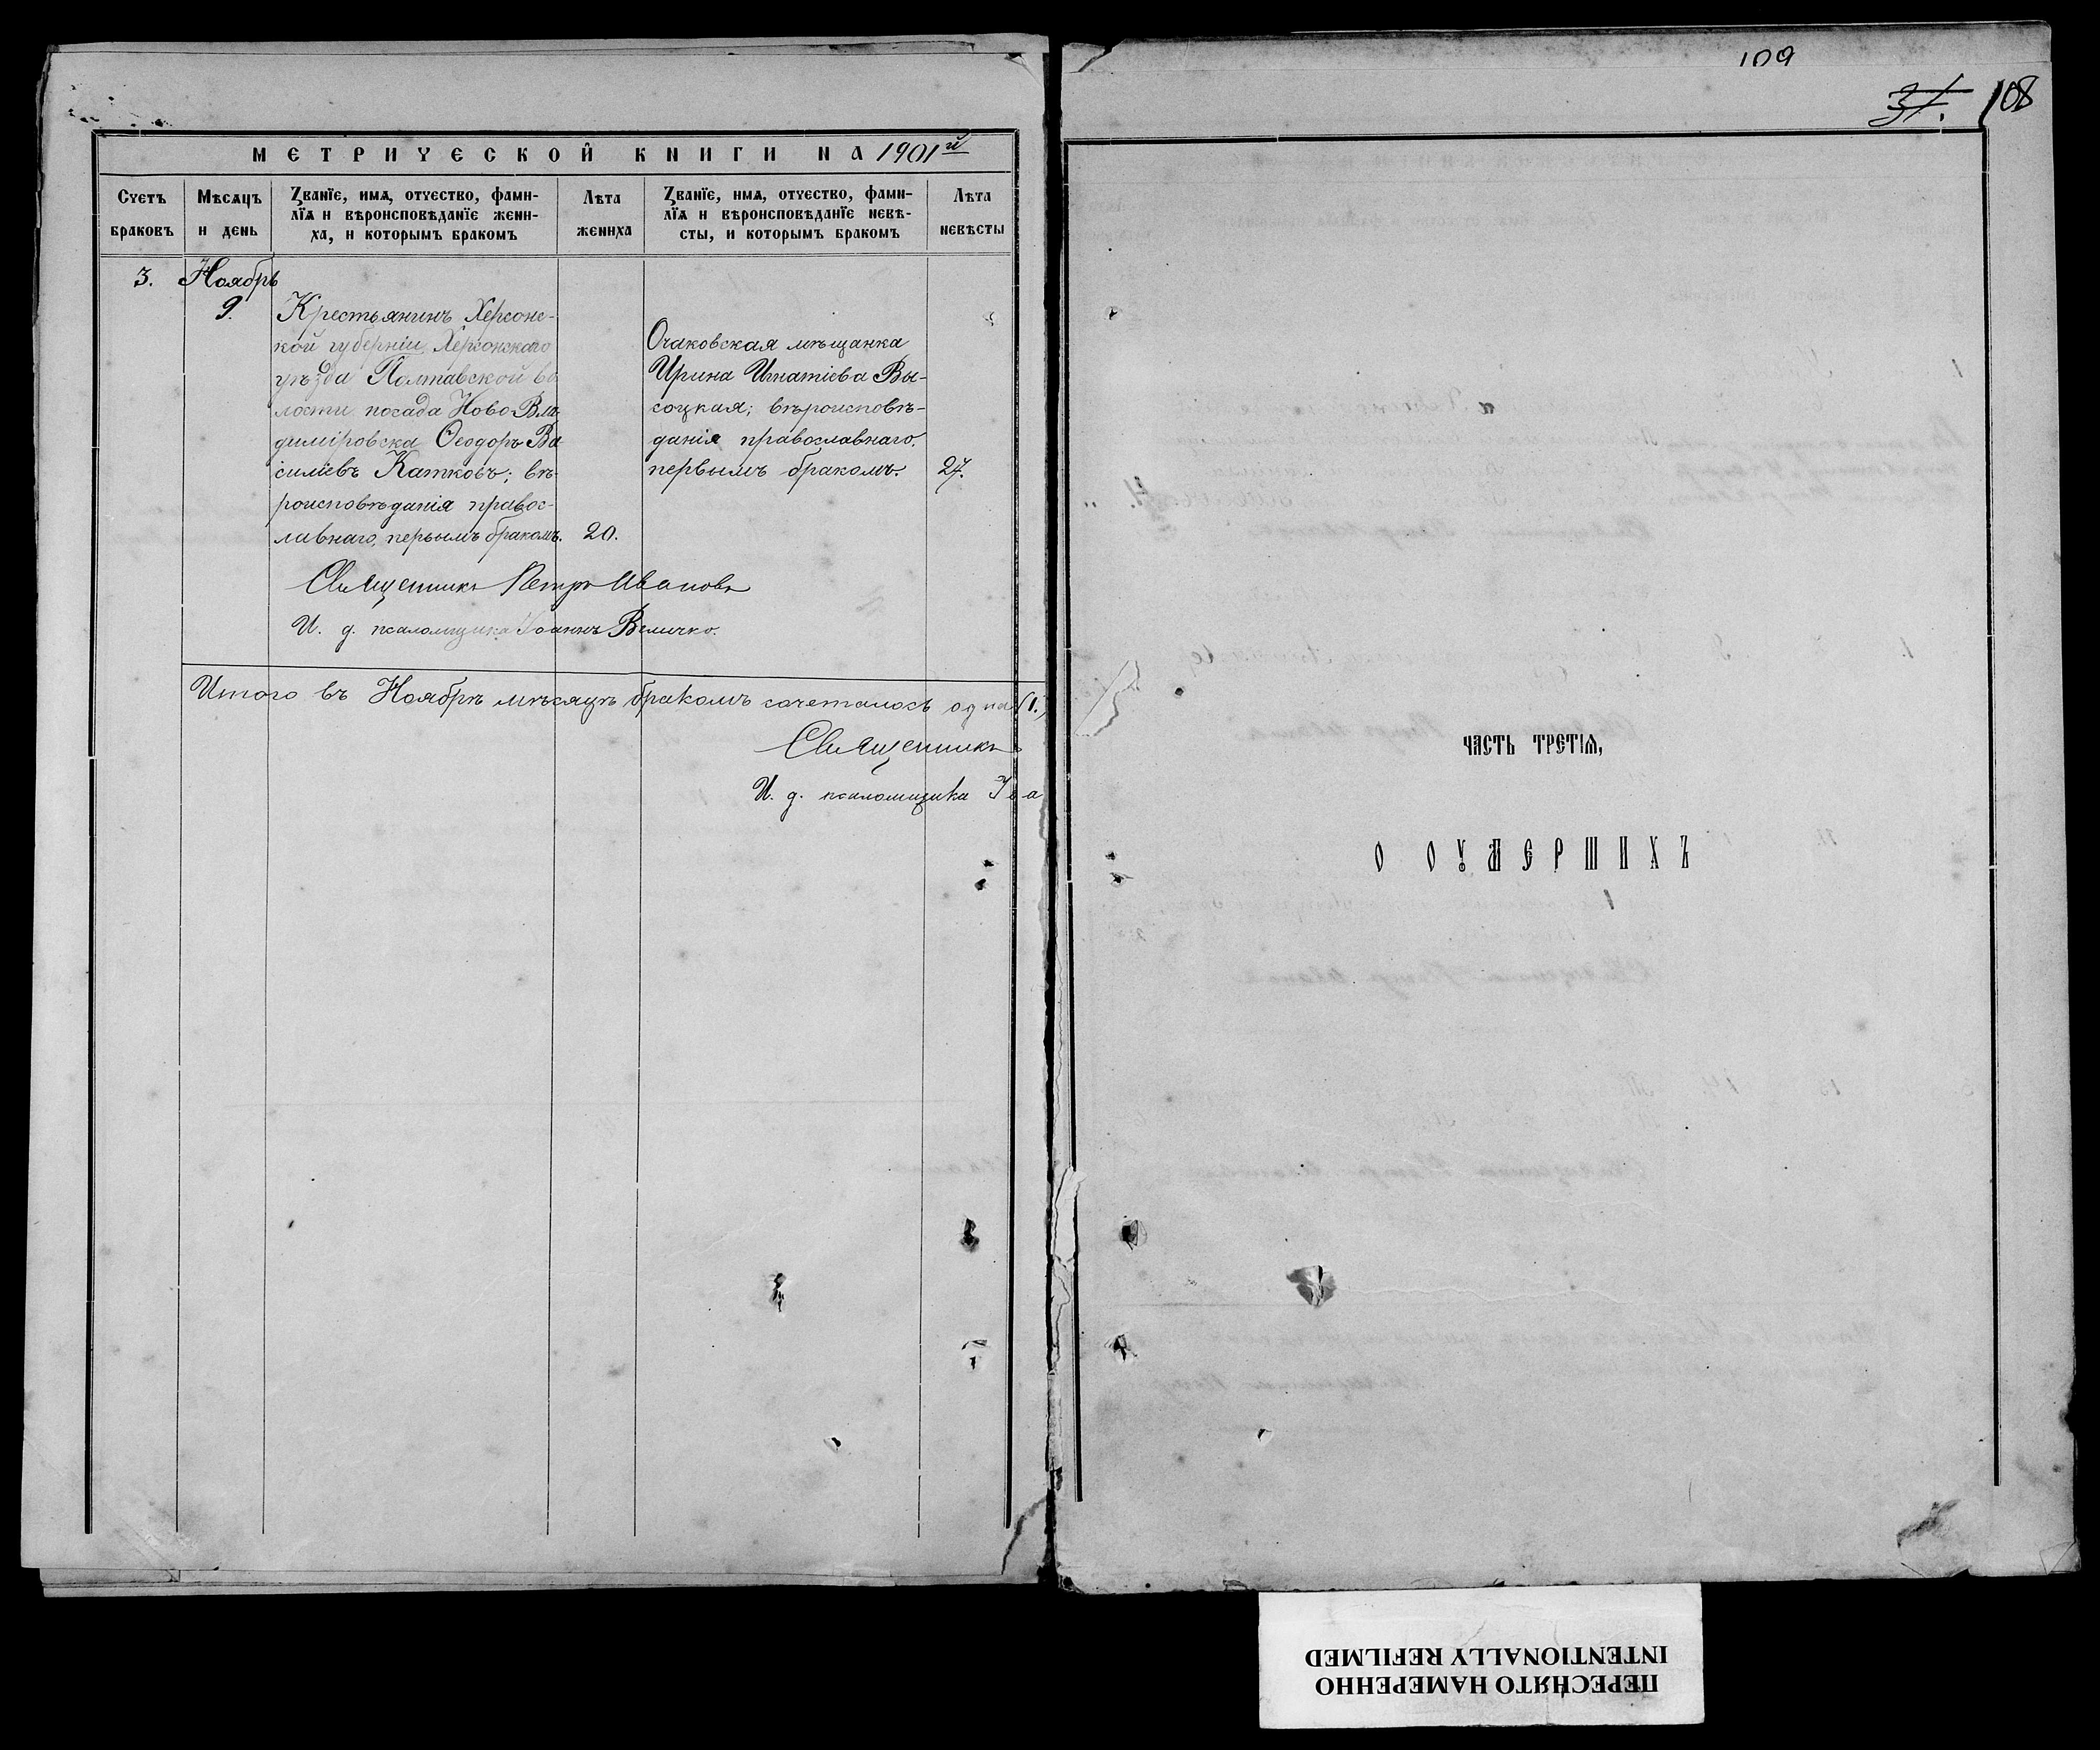 МЕТРИЧЕСКОЙ КНИГИ НА 1901й
Счетъ
браковъ
Мѣсяцъ
и день
Званіе, имя, отчество, фами-
лія и вѣроисповѣданіе жени-
ха, и которымъ бракомъ
Лѣта
жениха
Званіе, имя, отчество, фами-
лія и вѣроисповѣданіе невѣ-
сты, и которымъ бракомъ
Лѣта
невѣсты
3.
Ноябрь
9.
Крестьянинъ Херсонс-
кой губерніи Херсонскаго
уѣзда Полтавской во
лости посада Ново Вла-
диміровска Ѳеодоръ Ва
силіевъ Катковъ; вѣ-
роисповѣданія правос-
лавнаго, первымъ бракомъ.
20.
Очаковская мѣщанка
Ирина Игнатіева Вы-
соцкая; вѣроисповѣ-
данія православнаго,
первымъ бракомъ.
27.
Священникъ Петръ Ивановъ
И. д. псаломщика Іоаннъ Величко.
Итого въ Ноябрѣ мѣсяцѣ бракомъ сочеталось одна (1.)
Священникъ
И. д. псаломщика Іоа
109
31. 108
ЧАСТЬ ТРЕТІЯ,
О ОУМЕРШИХЪ
ПЕРЕСНЯТО НАМЕРЕННО
INTENTIONALLY REFILMED